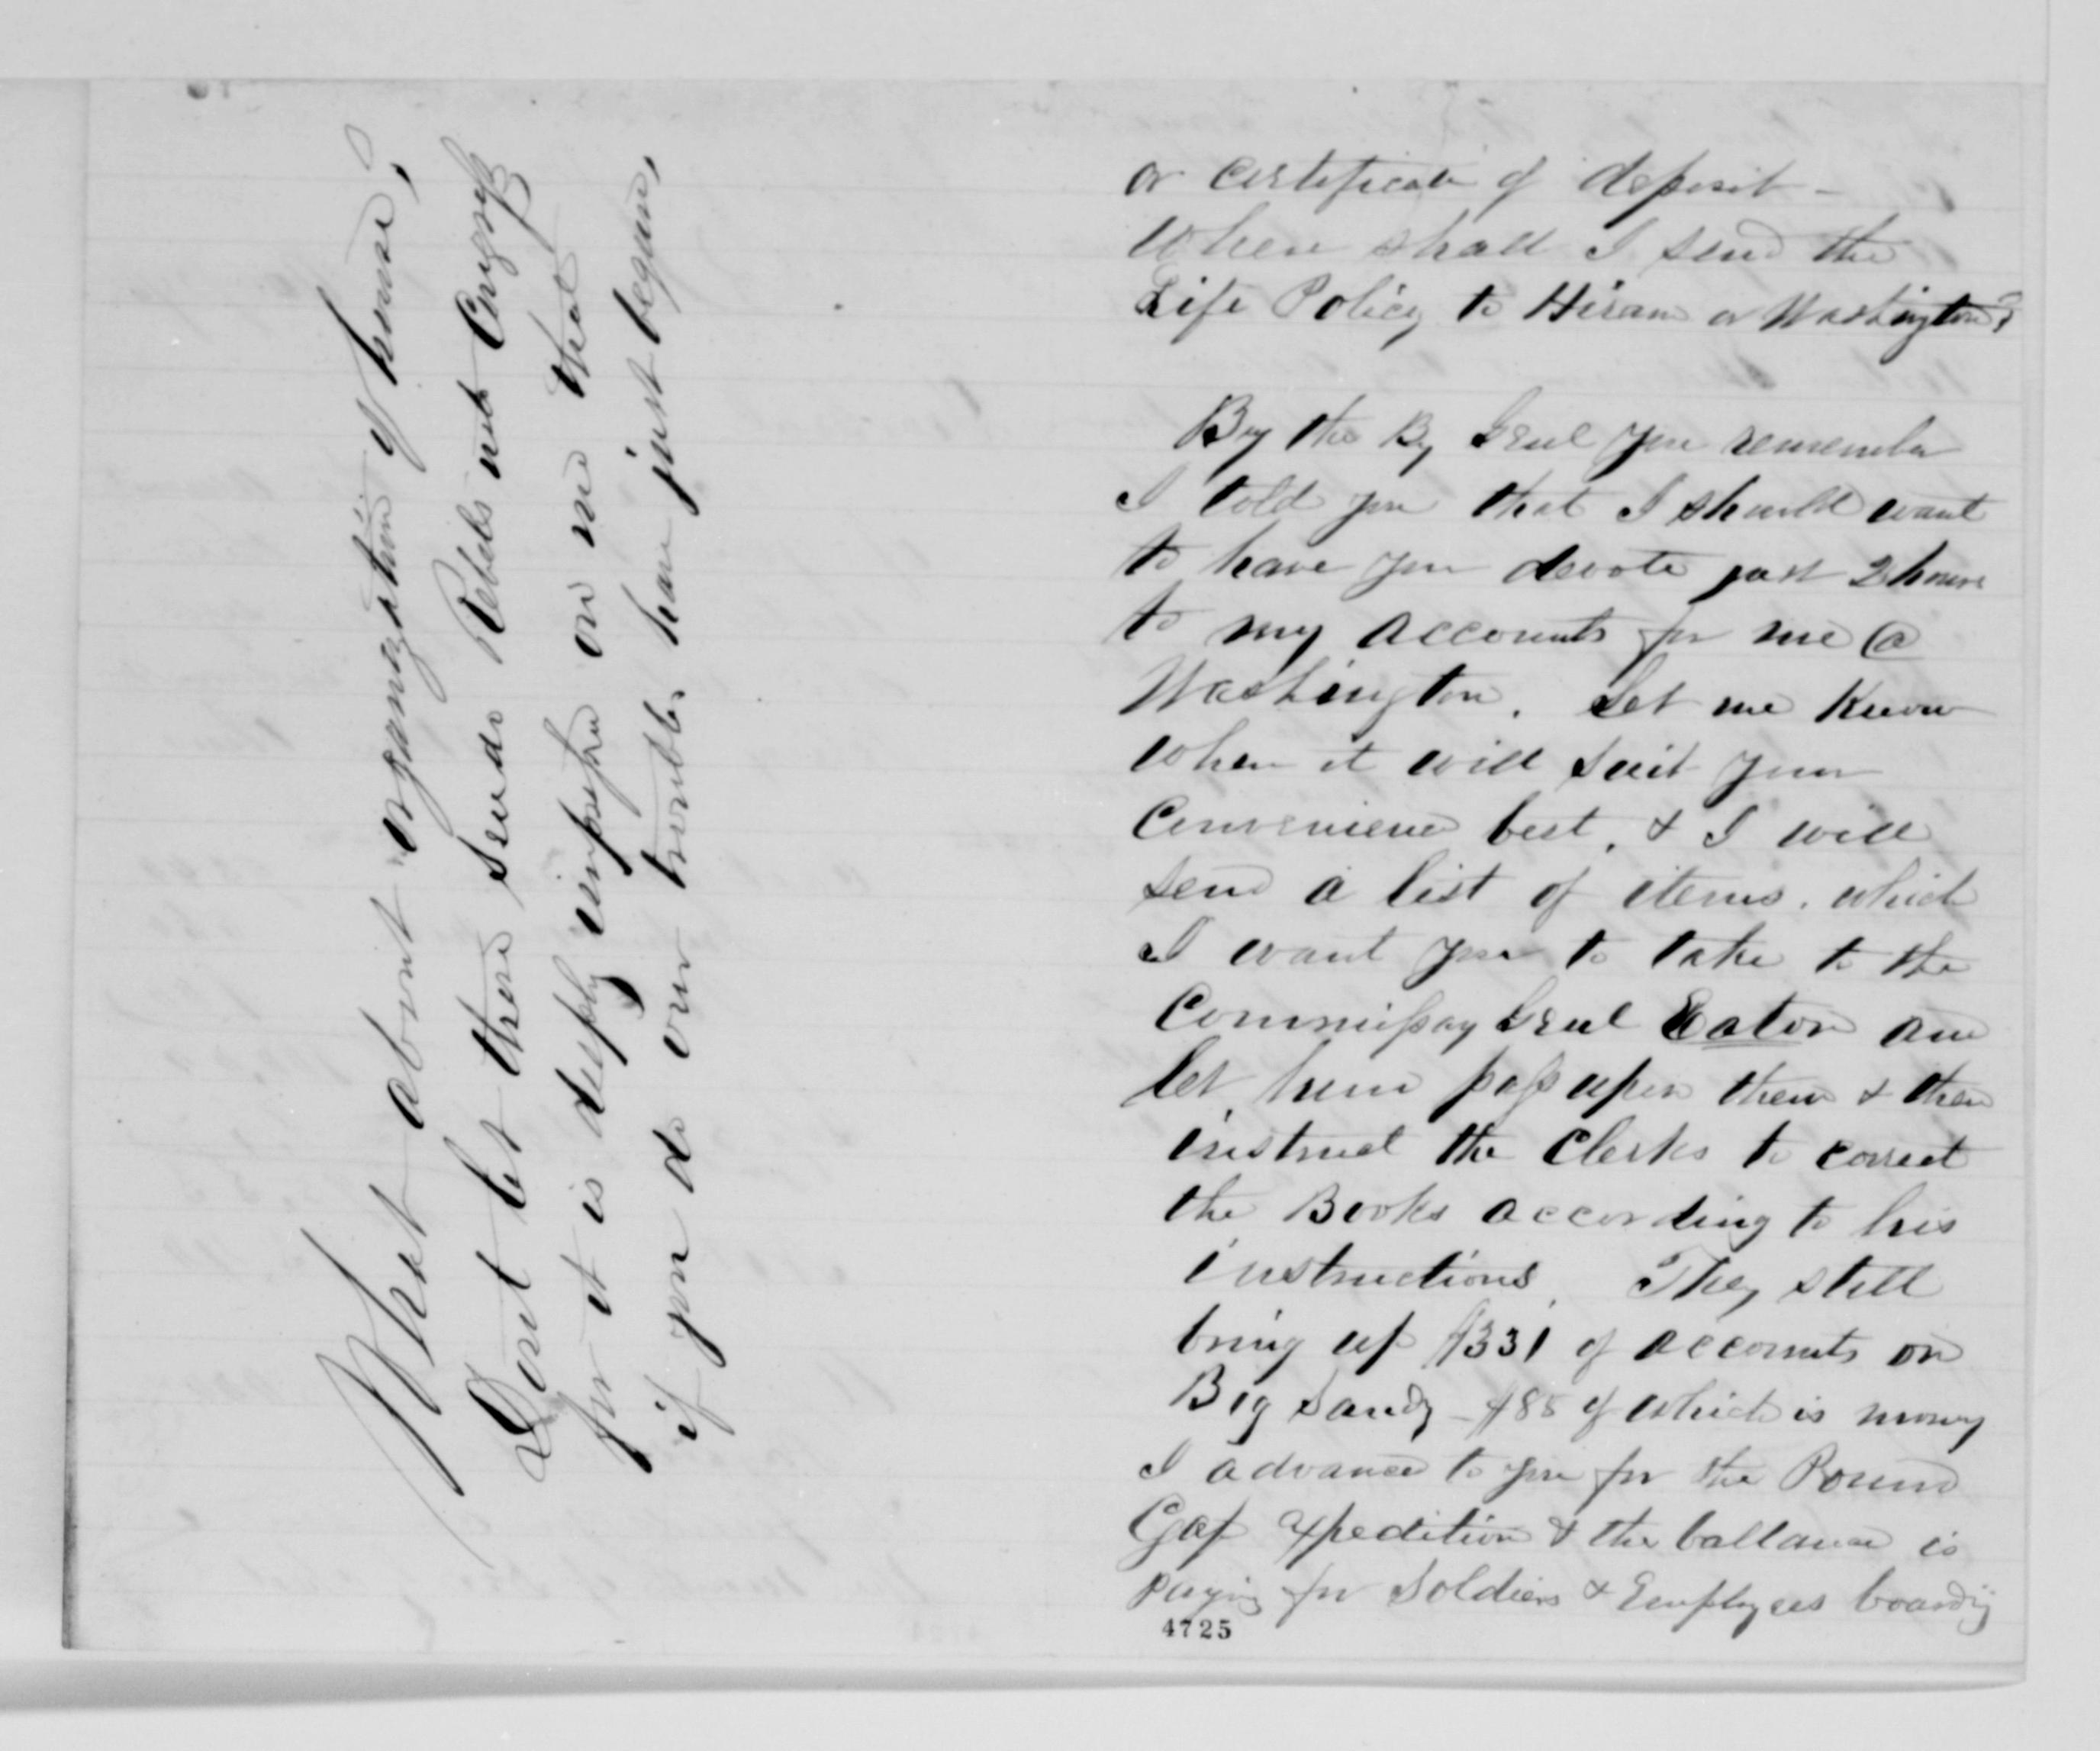 or certificate of deposit -
Where shall I send the
Life Policy to Hiram or Washington?
By the By Genl you remember
I told you that I should want
to have you devote just 2 hours
to my accounts for me @
Washington. Let me Know
when it will suit your
Convenience best, & I will
send a list of items. which
I want you to take to the
Commissary Genl Eaton and
let him pass upon them & then
instruct the Clerks to correct
the Books according to his
instructions. They still
bring up $331 of accounts on
Big Sandy - $85 of which is money
I advanced to you for the Pound
Gap Expedition & the ballance is
paying for Soldiers & Employees boarding
4725
What about organization of house,
Dont let those Semi Rebels into Congress
for it is deeply impressed on me that
if you do our troubles have just begun,